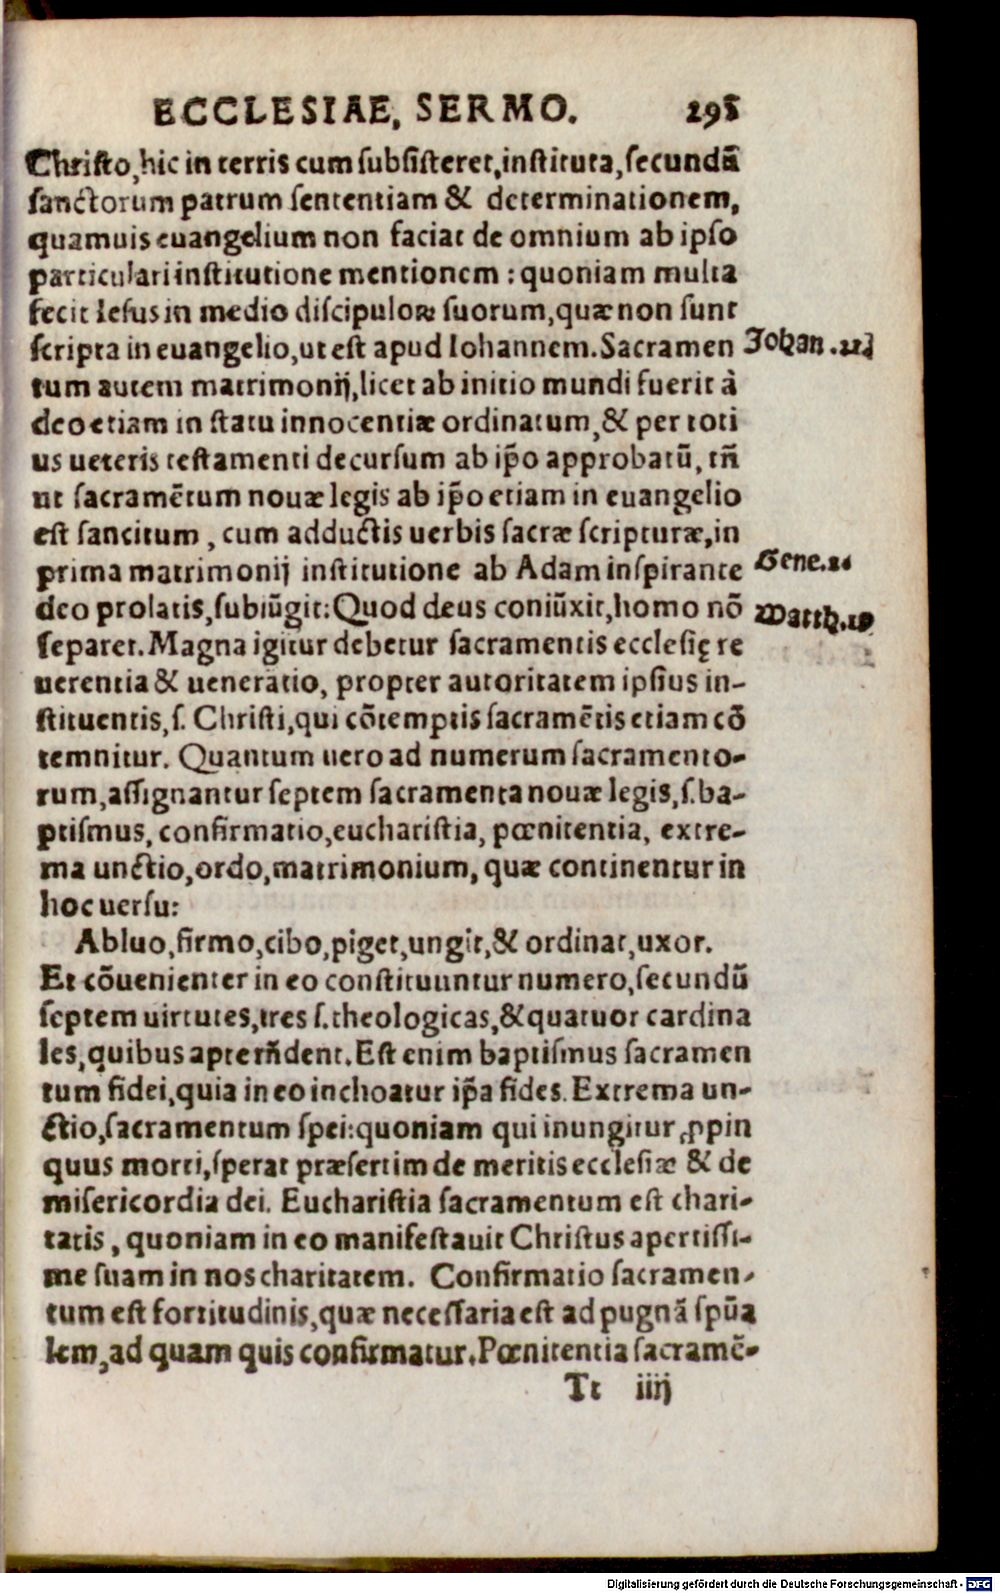 ECCLESIAE, SERMO. 295
Christo, hic in terris cum subsisteret, instituta, secundũ
sanctorum patrum sententiam & determinationem,
quamuis euangelium non faciat de omnium ab ipso
particulari institutione mentionem : quoniam multa
fecit Iesus in medio discipuloꝝ suorum, quæ non sunt
scripta in euangelio, ut est apud Iohannem. Sacramen
Johan. 21
tum autem matrimonij, licet ab initio mundi fuerit à
deo etiam in statu innocentiæ ordinatum, & per toti
us ueteris testamenti decursum ab ip̃o approbatũ, tñ
ut sacramẽtum nouæ legis ab ip̃o etiam in euangelio
est sancitum, cum adductis uerbis sacræ scripturæ, in
prima matrimonij institutione ab Adam inspirante
Gene. 2.
deo prolatis, subiũgit: Quod deus coniũxit, homo nõ
Matth. 19
separet. Magna igitur debetur sacramentis ecclesię re
uerentia & ueneratio, propter autoritatem ipsius in-
stituentis, s. Christi, qui cõtemptis sacramẽtis etiam cõ
temnitur. Quantum uero ad numerum sacramento-
rum, assignantur septem sacramenta nouæ legis, s. ba-
ptismus, confirmatio, eucharistia, pœnitentia, extre-
ma unctio, ordo, matrimonium, quæ continentur in
hoc uersu:
Abluo, firmo, cibo, piget, ungit, & ordinat, uxor.
Et cõuenienter in eo constituuntur numero, secundũ
septem uirtutes, tres s. theologicas, & quatuor cardina
les, quibus apte rñdent. Est enim baptismus sacramen
tum fidei, quia in eo inchoatur ip̃a fides. Extrema un-
ctio, sacramentum spei: quoniam qui inungitur ꝓpin
quus morti, sperat præsertim de meritis ecclesiæ & de
misericordia dei. Eucharistia sacramentum est chari-
tatis, quoniam in eo manifestauit Christus apertissi-
me suam in nos charitatem. Confirmatio sacramen-
tum est fortitudinis, quæ necessaria est ad pugnã spũa
lem, ad quam quis confirmatur. Pœnitentia sacramẽ-
Tt iiij
Digitalisierung gefördert durch die Deutsche Forschungsgemeinschaft - DFG